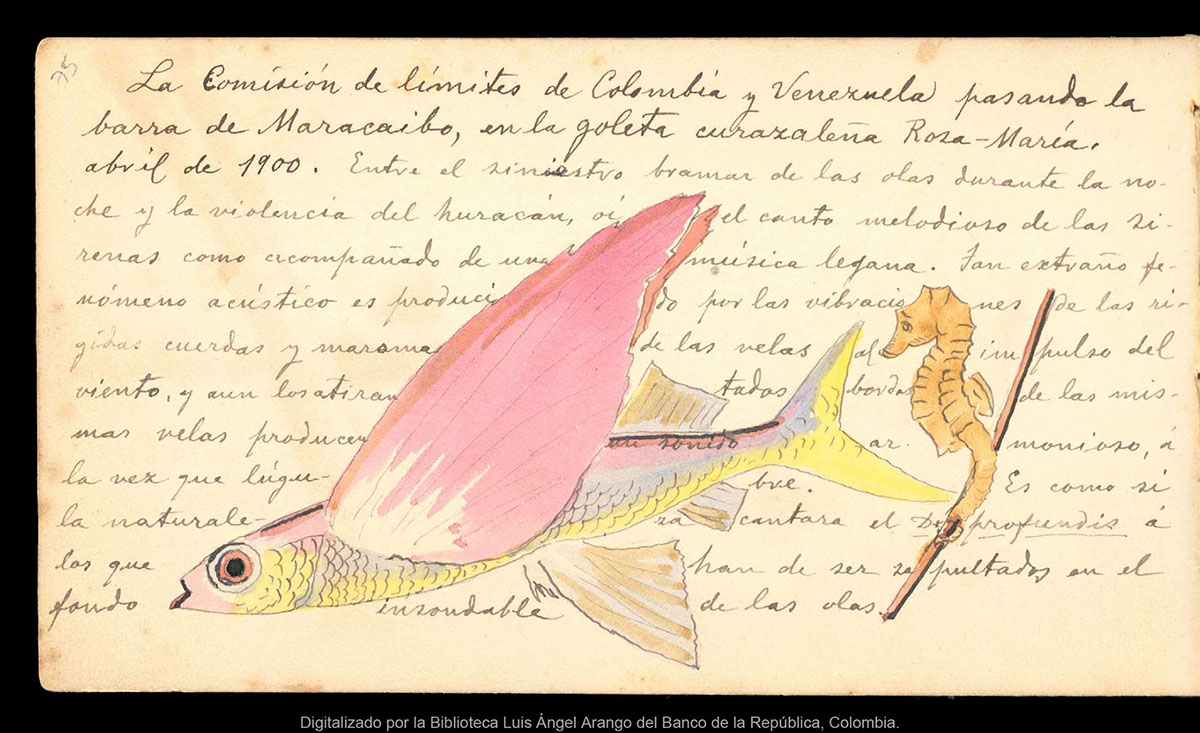 75
La Comisión de límites de Colombia y Venezuela pasando la
barra de Maracaibo, en la goleta curazaleña Rosa-María.
abril de 1900. Entre el siniestro bramar de las olas durante la no-
che y la violencia del huracán, oí el canto melodioso de las si-
renas como acompañado de una música lejana. Tan extraño fe-
nómeno acústico es produci do por las vibracio nes de las ri-
gidas cuerdas y maromas de las velas al impulso del
viento, y aun los atiran tados bordes de las mis-
mas velas producen un sonido ar. monioso, á
la vez que lúgu- bre. Es como si
la naturale- za cantara el De profundis á
los que han de ser se pultados en el
fondo insondable de las olas.
Digitalizado por la Biblioteca Luis Ángel Arango del Banco de la República, Colombia.